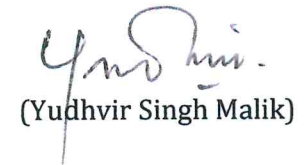 (Yudhvir Singh Malik)